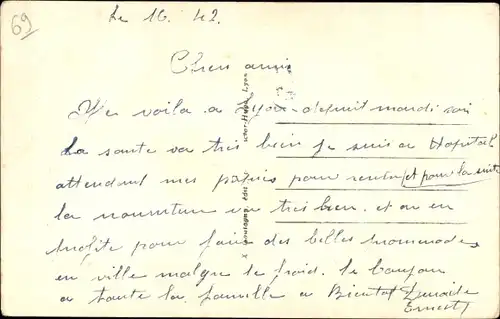 69
Le 16. 42
Cher ami
Me voila a Lyon depuit mardi soir
la sante va tres bien je suis a Hopital
attendent mes papies pour rentre et pour la suite
la nourriture va tres bien. et on en
profite pour faire des belles promenade
en ville malgre le froid. le bonjour
a toute la famille a Bientot
Ernest
Victor-Hugo Lyon